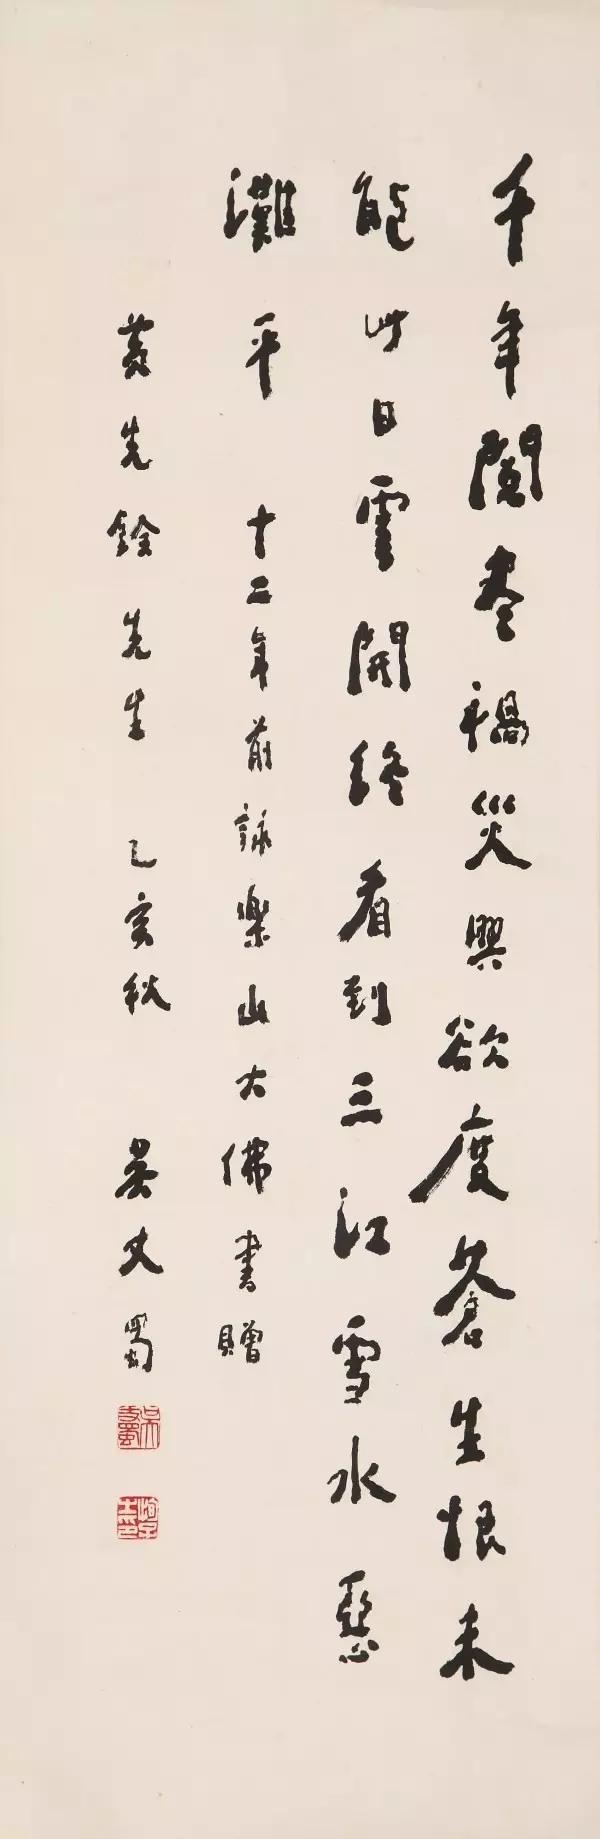 千年閱盡禍災興欲度蒼生恨未
能此日雲開終看到三江雪水懸
灘平 十二年前詠樂山大佛書贈
黃先銓先生 乙亥秋 吳丈蜀